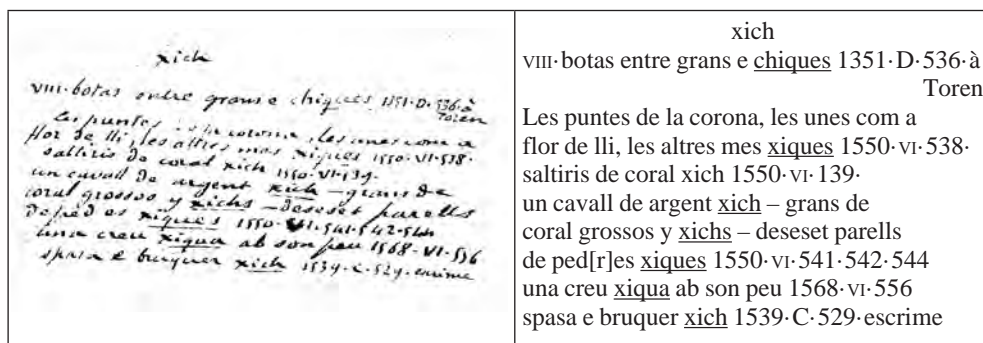 xich
VIII·botas entre grans e chiques 1351·D·536·à
Toren
Les puntes la corona, les unes com a
flor de lli, les altres mes xiques 1550·VI·538·
saltiris de coral xich 1550·VI·139·
un cavall de argent xich – grans de
coral grossos y xichs – deseset parells
de ped es xiques 1550·VI·541·542·544
una creu xiqua ab son peu 1568·VI·556
spasa e bruquer xich 1539·C·529·escrime
xich
VIII·botas entre grans e chiques 1351·D·536·à
Toren
Les puntes de la corona, les unes com a
flor de lli, les altres mes xiques 1550·VI·538·
saltiris de coral xich 1550·VI·139·
un cavall de argent xich – grans de
coral grossos y xichs – deseset parells
de ped[r]es xiques 1550·VI·541·542·544
una creu xiqua ab son peu 1568·VI·556
spasa e bruquer xich 1539·C·529·escrime